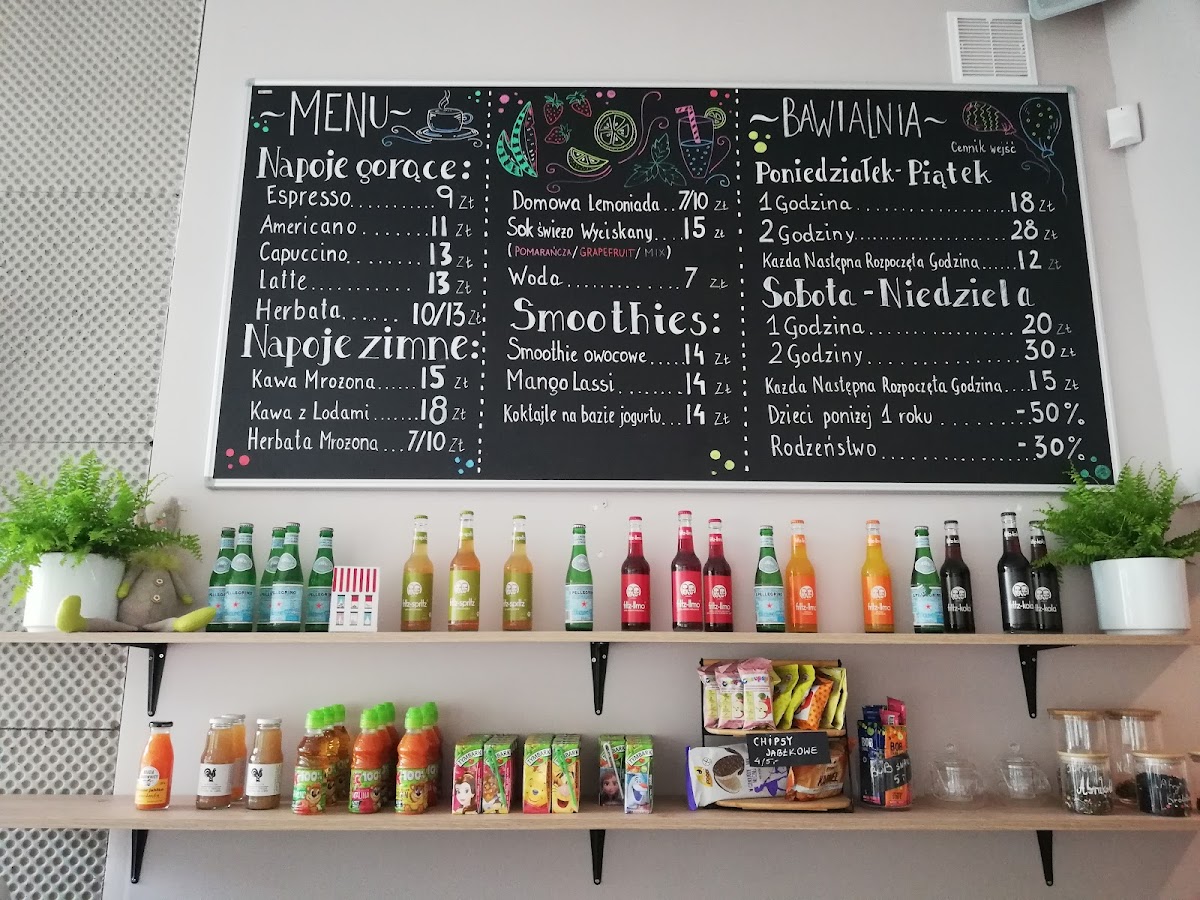 ~MENU~
Napoje gorące:
Espresso.......... 9 Zł
Americano........ 11 Zł
Capuccino........ 13 Zł
Latte............ 13 Zł
Herbata...... 10/13 Zł
Napoje zimne:
Kawa Mrożona...... 15 Zł
Kawa z Lodami....... 18 Zł
Herbata Mrożona... 7/10 Zł
Domowa Lemoniada.. 7/10 Zł
Sok świeżo Wyciskany.... 15 Zł
(POMARAŃCZA/GRAPEFRUIT/MIX)
Woda............ 7 Zł
Smoothies:
Smoothie owocowe..... 14 Zł
Mango Lassi........ 14 Zł
Koktajle na bazie jogurtu... 14 Zł
~BAWIALNIA~
Cennik wejść
Poniedziałek-Piątek
1 Godzina.................... 18 Zł
2 Godziny.................... 28 Zł
Każda Następna Rozpoczęta Godzina..... 12 Zł
Sobota-Niedziela
1 Godzina.................. 20 Zł
2 Godziny.................. 30 Zł
Każda Następna Rozpoczęta Godzina.... 15 Zł
Dzieci poniżej 1 roku......... -50%
Rodzeństwo................. -30%
S.PELLEGRINO
fritz-spritz
fritz-spritz
fritz-spritz
fritz-limo
fritz-limo
fritz-limo
fritz-limo
fritz-limo
fritz-kola
fritz-kola
fritz-kola
100%
100%
100%
CHIPSY
JABŁKOWE
4/5.-
BOB
BOB